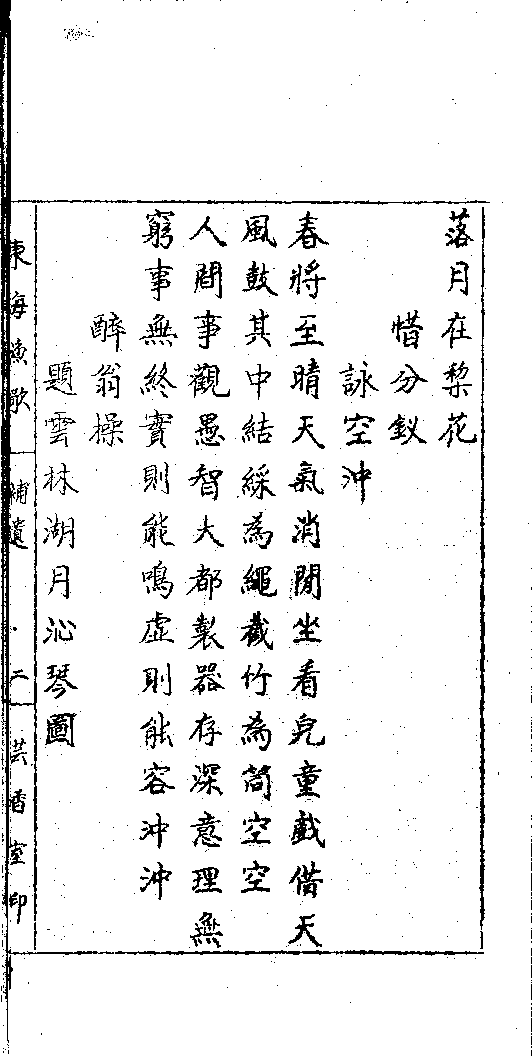 落月在棃花
惜分釵
詠空沖
春將至晴天氣消閒坐看兒童戲借天
風鼓其中結綵為繩截竹為筒空空
人間事觀愚智大都製器存深意理無
窮事無終實則能鳴虛則能容沖沖
醉翁操
題雲林湖月沁琴圖
東海漁歌 補遺 二 芸香室印